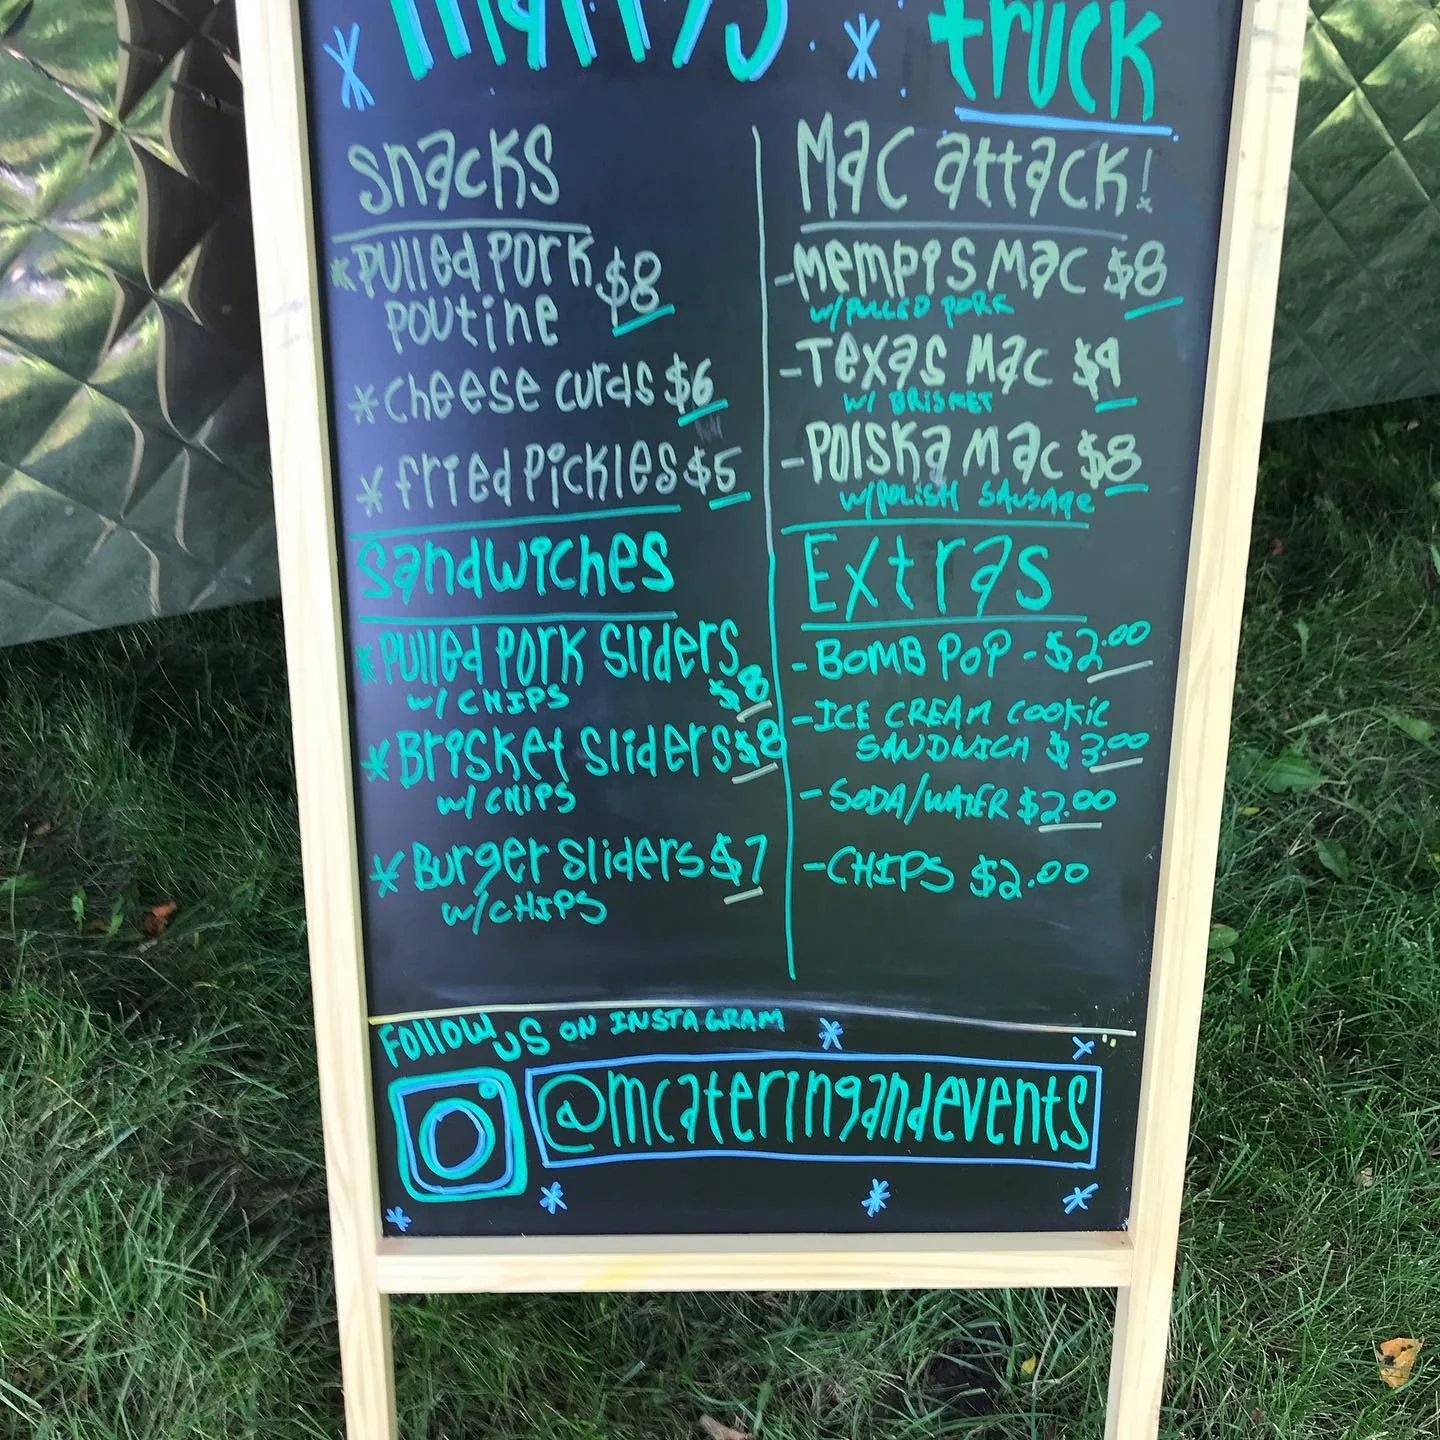 truck
Snacks
Pulled Pork $8
Poutine
cheese curds $6
fried pickles $5
Sandwiches
Pulled Pork Sliders
w/ CHIPS $8
Brisket Sliders $8
w/ CHIPS
Burger Sliders $7
w/ CHIPS
Mac attack!
- Mempis Mac $8
w/ PULLED PORK
- Texas Mac $9
w/ BRISKET
- Polska Mac $8
w/ POLISH SAUSAGE
Extras
- BOMB POP - $2.00
- ICE CREAM COOKIE
SANDWICH $3.00
- SODA/WATER $2.00
- CHIPS $2.00
Follow us ON INSTAGRAM
@mcateringandevents